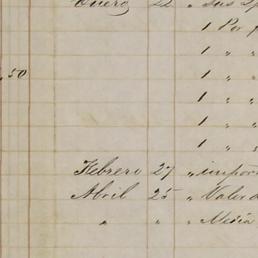 Enero 22 " sus
1 Por
1 " "
,50 1 " "
1 " "
1 " "
1 " "
Febrero 27 " impor
Abril 25 " Valor d
" " " Media